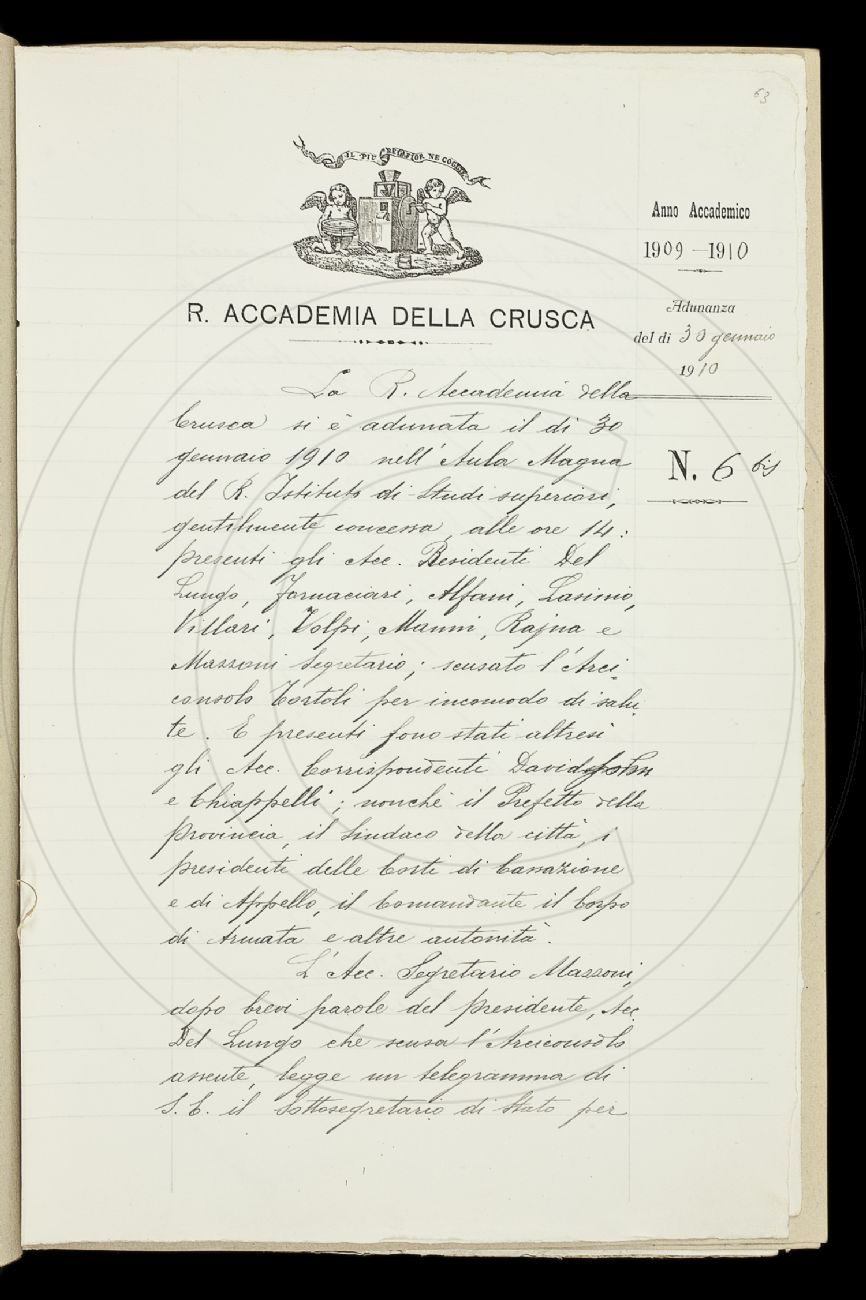 63
IL PIÙ BEL FIOR NE COGLIE
R. ACCADEMIA DELLA CRUSCA
Anno Accademico
1909-1910
Adunanza
del dì 30 gennaio
1910
N. 6 bis
La R. Accademia della
Crusca si è adunata il dì 30
gennaio 1910 nell'Aula Magna
del R. Istituto di Studi superiori,
gentilmente concessa, alle ore 14:
presenti gli Acc. Residenti Del
Lungo, Fornaciari, Alfani, Lasinio,
Villari, Volpi, Manni, Rajna e
Mazzoni Segretario; scusato l'Arci-
consolo Tortoli per incomodo di salu-
te. E presenti sono stati altresì
gli Acc. Corrispondenti Davidsohn
e Chiappelli; nonché il Prefetto della
Provincia, il Sindaco della città, i
presidenti delle Corti di Cassazione
e di Appello, il Comandante il Corpo
di Armata e altre autorità.
L'Acc. Segretario Mazzoni,
dopo brevi parole del presidente, Acc.
Del Lungo che scusa l'Arciconsolo
assente, legge un telegramma di
S. E. il Sottosegretario di Stato per